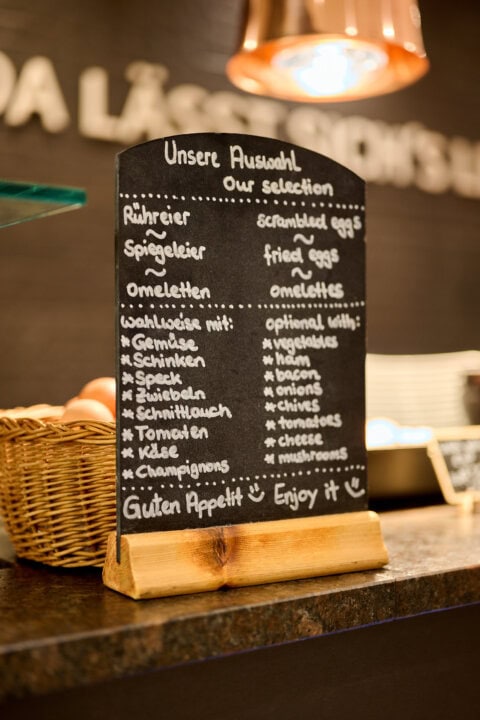 DA LÄSST SICH'S
Unsere Auswahl
Our selection
Rühreier
~
Spiegeleier
~
Omeletten
scrambled eggs
~
fried eggs
~
omelettes
wahlweise mit:
* Gemüse
* Schinken
* Speck
* Zwiebeln
* Schnittlauch
* Tomaten
* Käse
* Champignons
optional with:
* vegetables
* ham
* bacon
* onions
* chives
* tomatoes
* cheese
* mushrooms
Guten Appetit Enjoy it